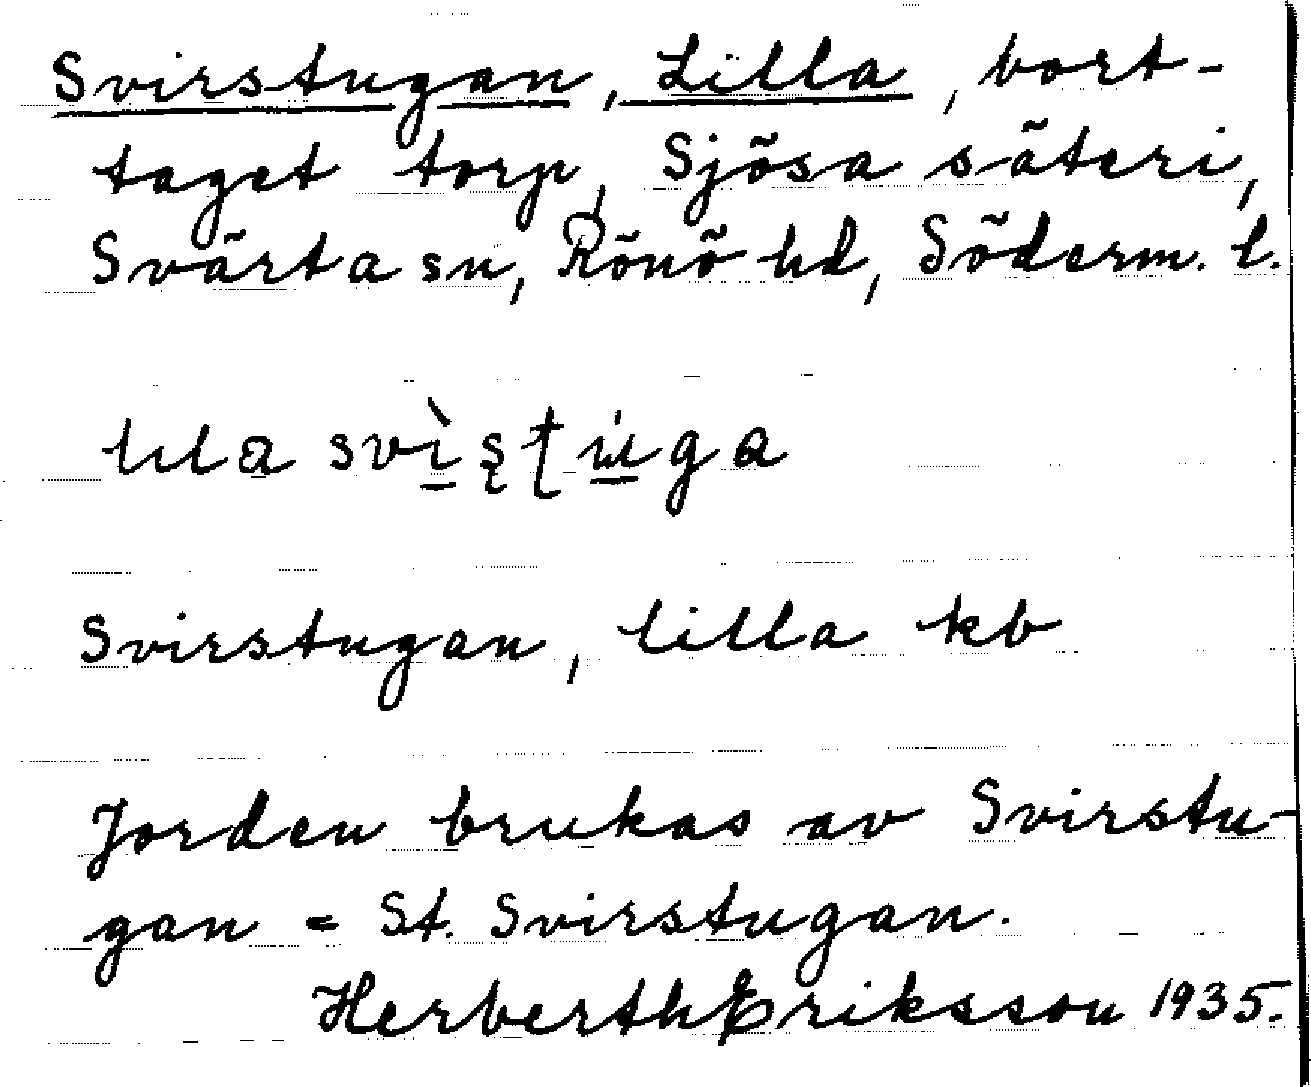 Svirstugan, Lilla, bort-
taget torp, Sjösa säteri,
Svärta sn, Rönö hd, Söderm. l.
Svirstugan, lilla kb
Jorden brukas av Svirstu-
gan = St. Svirstugan.
Herberth Eriksson 1935.